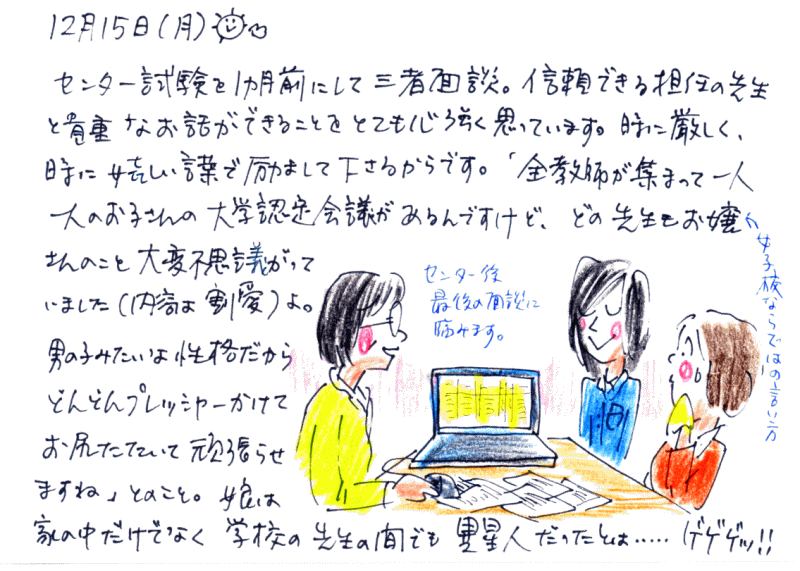 12月15日(月)
センター試験を1カ月前にして三者面談。信頼できる担任の先生
と貴重なお話ができることをとても心強く思っています。時に厳しく、
時に嬉しい言葉で励まして下さるからです。「全教師が集まって一人
一人のお子さんの大学認定会議があるんですけど、どの先生もお嬢
さんのこと大変不思議がって
いました(内容は割愛)よ。
男の子みたいな性格だから
どんどんプレッシャーかけて
お尻たたいて頑張らせ
ますね」とのこと。娘は
家の中だけでなく学校の先生の間でも異星人だったとは・・・・・(ゲゲゲッ!!
センター後
最後の面談に
臨みます。
女子校ならではの言い方